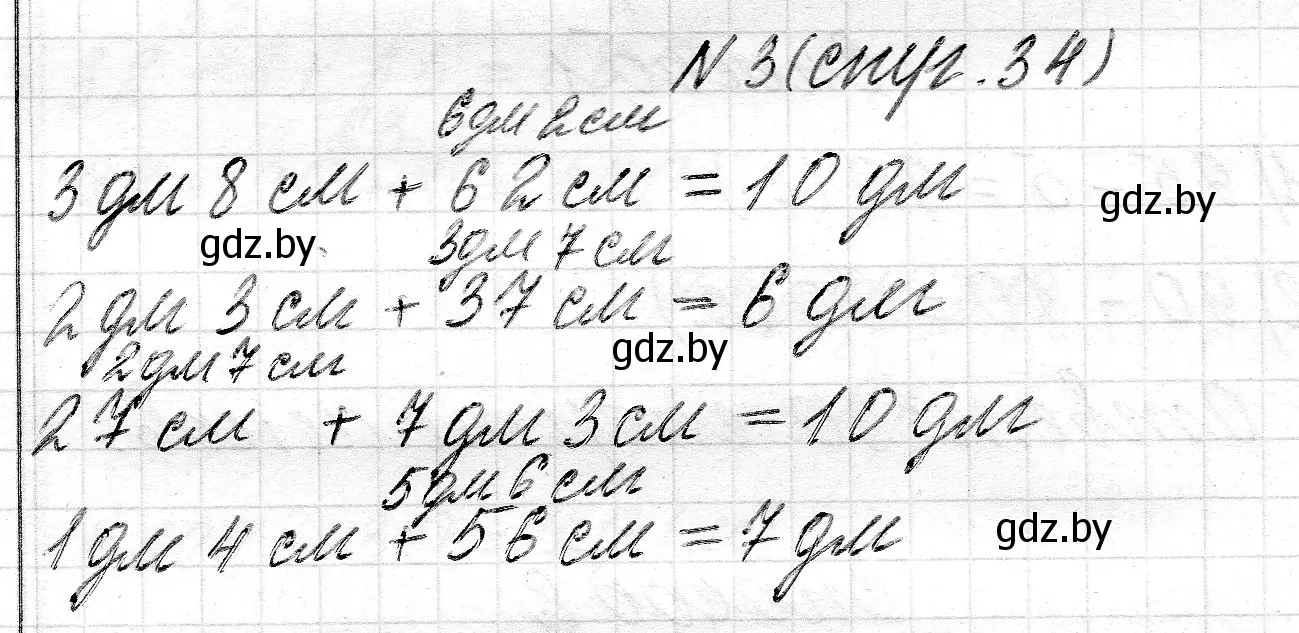 N 3 (стр. 34)
6 дм 2 см
3 дм 8 см + 62 см = 10 дм
gdz.by
gdz.by
3 дм 7 см
2 дм 3 см + 37 см = 6 дм
gdz.by
2 дм 7 см
27 см + 7 дм 3 см = 10 дм
5 дм 6 см
1 дм 4 см + 56 см = 7 дм
gdz.by